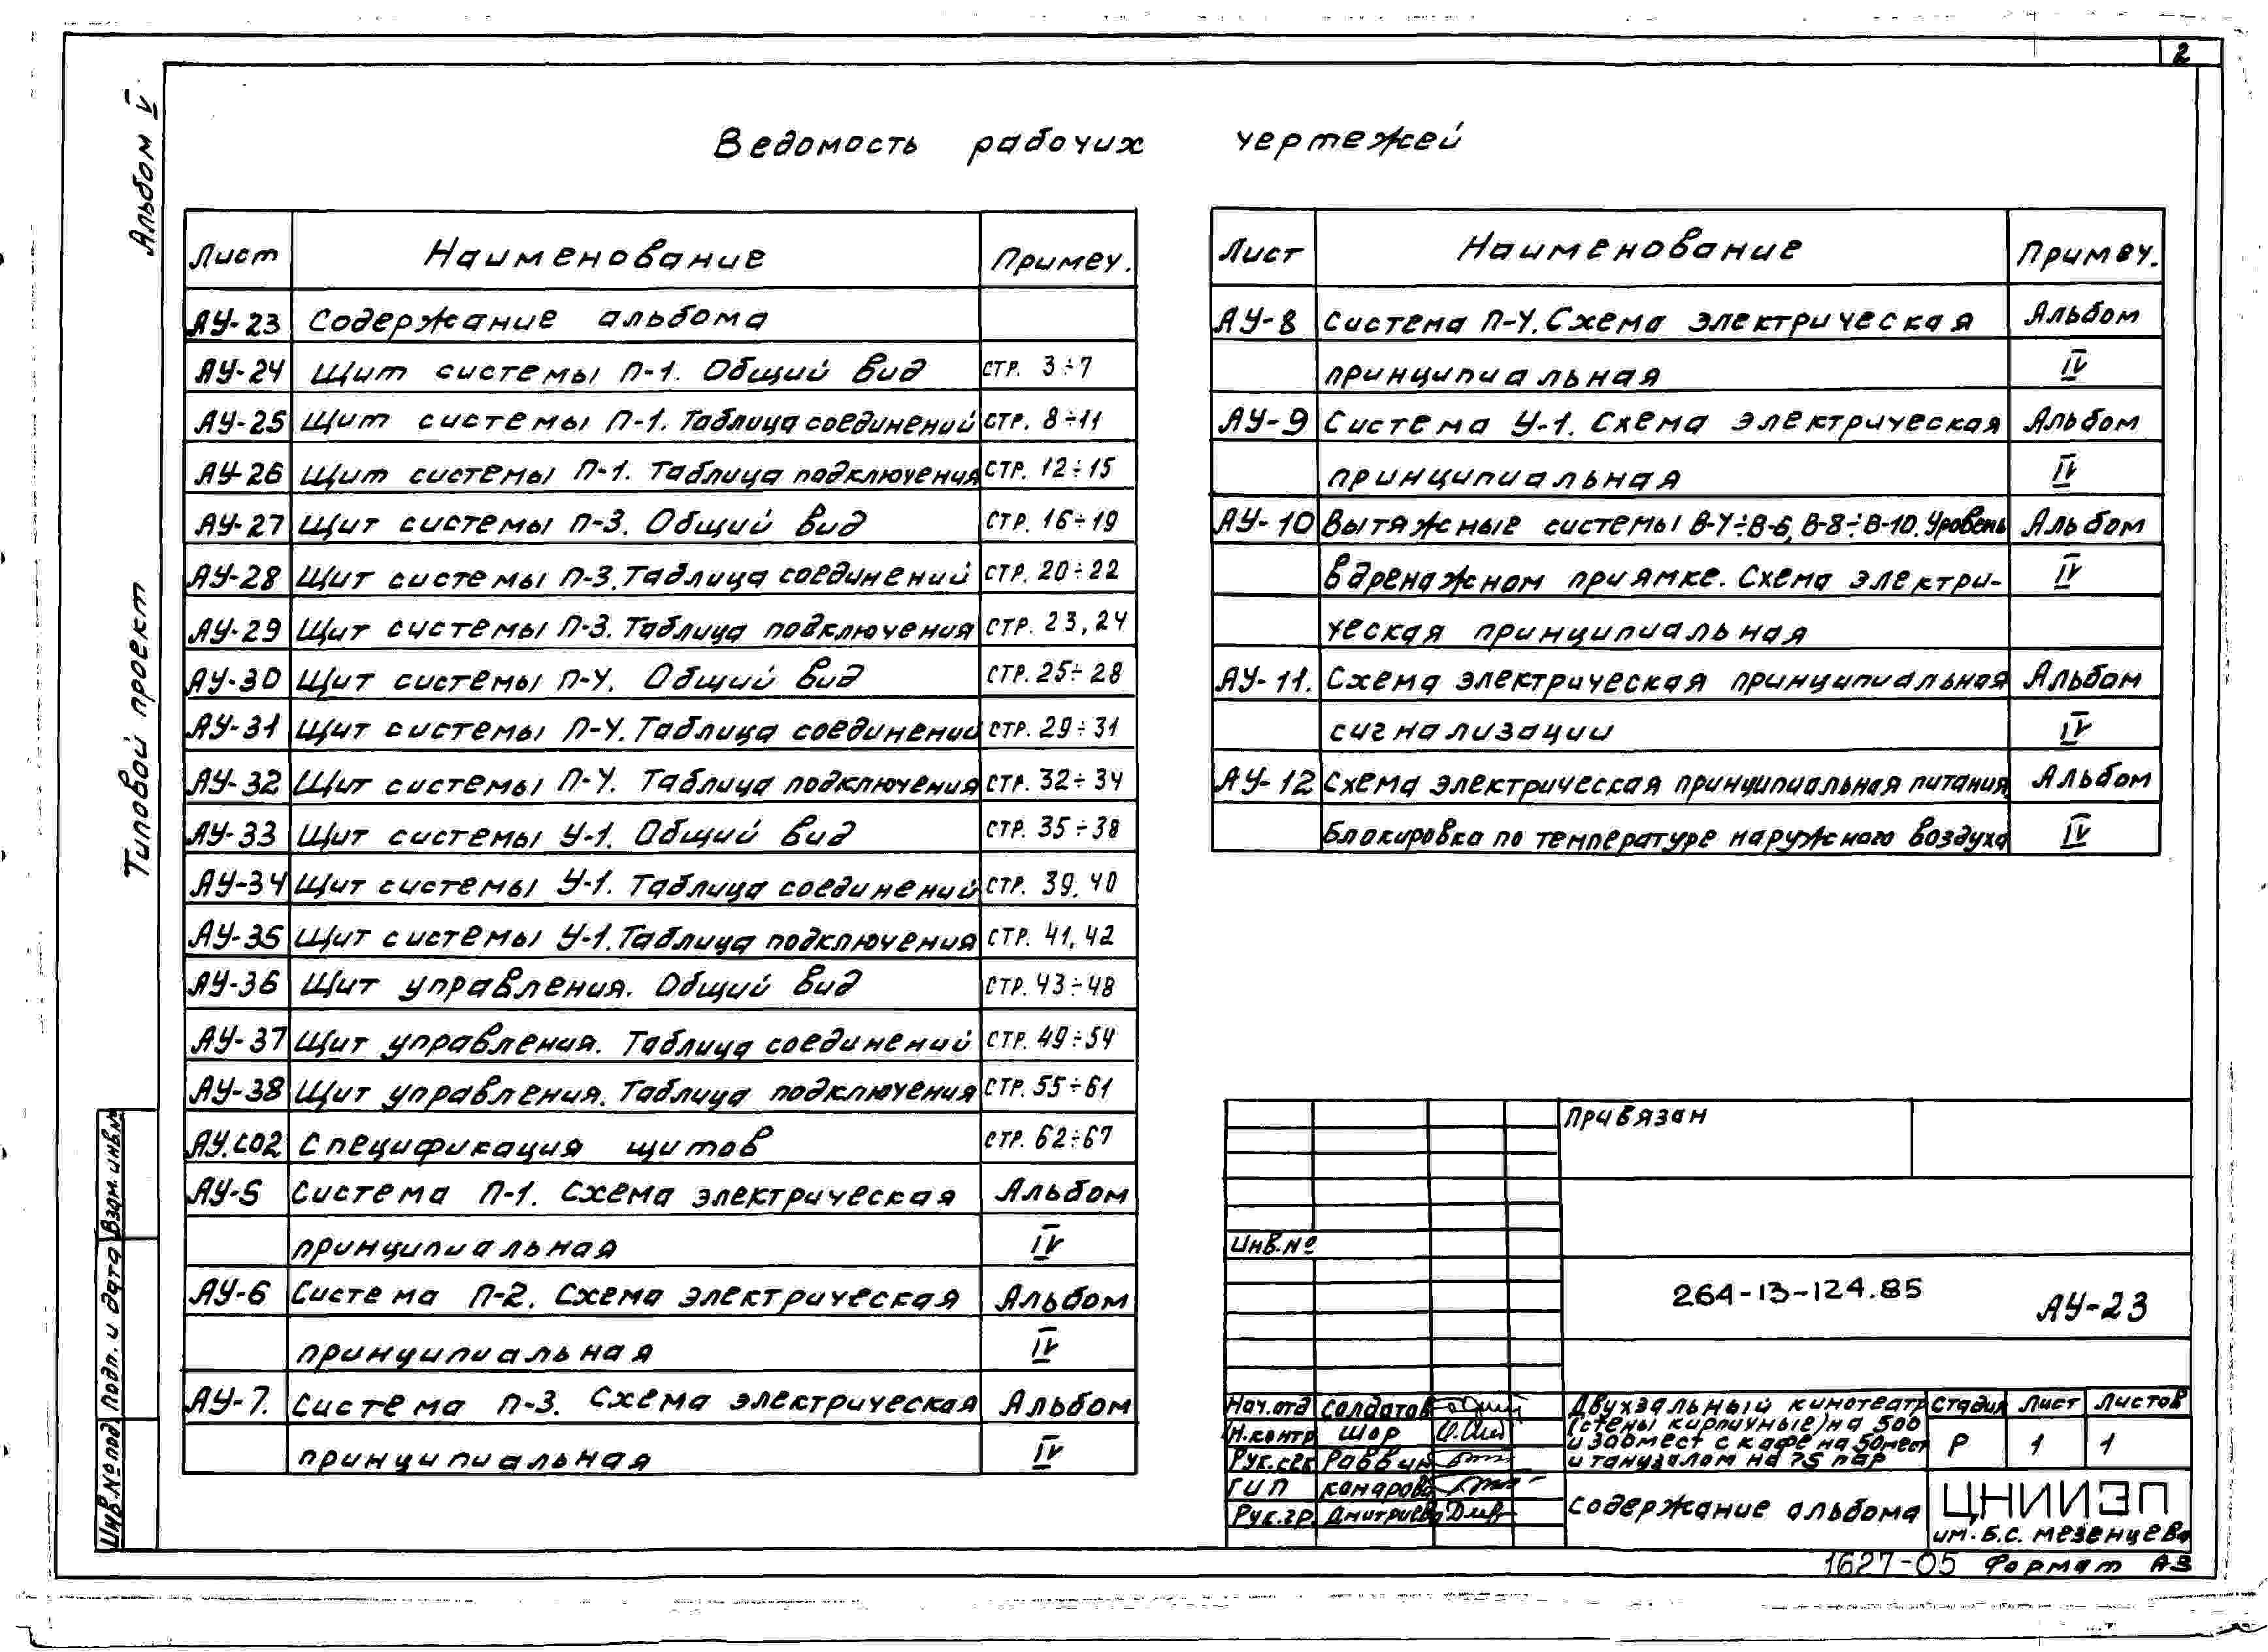 2
Альбом V
Типовой проект
Ведомость рабочих чертежей
Лист Наименование Примеч.
АУ-23 Содержание альбома
АУ-24 Щит системы П-1. Общий вид стр. 3÷7
АУ-25 Щит системы П-1. Таблица соединений стр. 8÷11
АУ-26 Щит системы П-1. Таблица подключения стр. 12÷15
АУ-27 Щит системы П-3. Общий вид стр. 16÷19
АУ-28 Щит системы П-3. Таблица соединений стр. 20÷22
АУ-29 Щит системы П-3. Таблица подключения стр. 23, 24
АУ-30 Щит системы П-4. Общий вид стр. 25÷28
АУ-31 Щит системы П-4. Таблица соединений стр. 29÷31
АУ-32 Щит системы П-4. Таблица подключения стр. 32÷34
АУ-33 Щит системы У-1. Общий вид стр. 35÷38
АУ-34 Щит системы У-1. Таблица соединений стр. 39, 40
АУ-35 Щит системы У-1. Таблица подключения стр. 41, 42
АУ-36 Щит управления. Общий вид стр. 43÷48
АУ-37 Щит управления. Таблица соединений стр. 49÷54
АУ-38 Щит управления. Таблица подключения стр. 55÷61
АУ.СО2 Спецификация щитов стр. 62÷67
АУ-5 Система П-1. Схема электрическая Альбом
принципиальная IV
АУ-6 Система П-2. Схема электрическая Альбом
принципиальная IV
АУ-7. Система П-3. Схема электрическая Альбом
принципиальная IV
Лист Наименование Примеч.
АУ-8 Система П-4. Схема электрическая Альбом
принципиальная IV
АУ-9 Система У-1. Схема электрическая Альбом
принципиальная IV
АУ-10 Вытяжные системы В-4÷В-6, В-8÷В-10. Уровень Альбом
в дренажном приямке. Схема электри- IV
ческая принципиальная
АУ-11. Схема электрическая принципиальная Альбом
сигнализации IV
АУ-12 Схема электрическая принципиальная питания. Альбом
Блокировка по температуре наружного воздуха IV
Взам. инв.№
Подп. и дата
Инв.№ подл.
Привязан
Инв.№
264-13-124.85 АУ-23
Нач.отд Солдатов
Н.контр Шор
Рук.сек Раввин
ГИП Комарова
Рук.гр. Дмитриева
Двухзальный кинотеатр
(стены кирпичные) на 500
и 300 мест с кафе на 50 мест
и танцзалом на 75 пар
Стадия Лист Листов
Р 1 1
Содержание альбома
ЦНИИЭП
им. Б.С. Мезенцева
1627-05 Формат А3